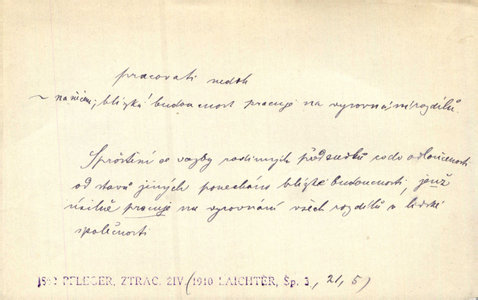 pracovati nedok
~ na něčem; blízká budoucnost pracuje na vyrovnání rozdílů.
Sproštění vazby rodinných předsudků co do odloučenosti
od stavů jiných ponecháno blízké budoucnosti, jenž
úsilně pracuje na vyrovnání všech rozdílů v lidské
společnosti
PFLEGER, ZTRAC. ŽIV. (1910 LAICHTER, Šp. 3, 21, 5)